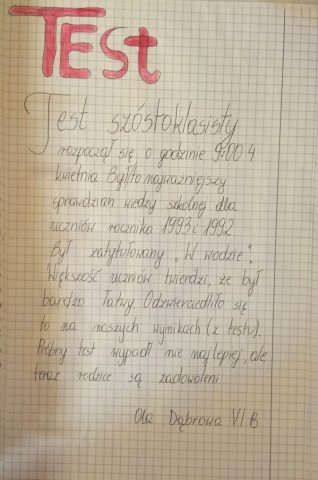 TEst
Test szóstoklasisty
rozpoczął się o godzinie 9:00 4
kwietnia Był to najważniejszy
sprawdzian wiedzy szkolnej dla
uczniów rocznika 1993 i 1992
Był zatytułowany „W wodzie".
Większość uczniów twierdzi, że był
bardzo łatwy. Odzwierciedliło się
to na naszych wynikach (z testu).
Próbny test wypadł nie najlepiej, ale
teraz rodzice są zadowoleni.
Ola Dąbrowa VI B